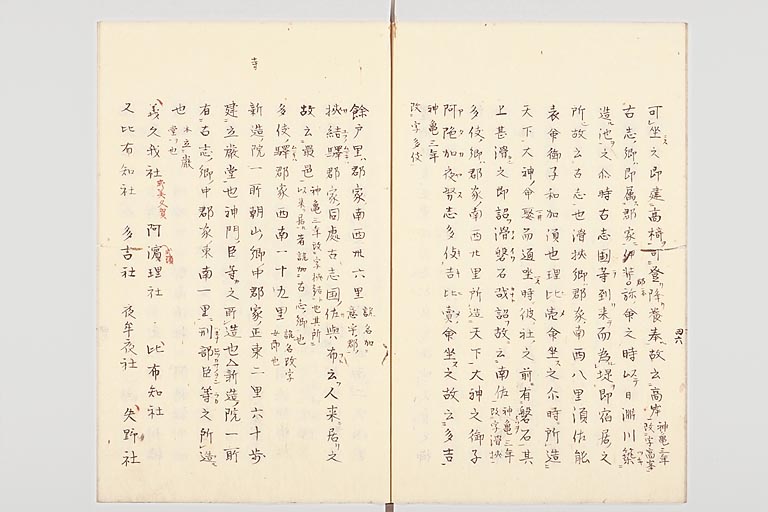 可坐之即建高椅可登降養奉故云高岸 神亀三年改字高峯
古志郷即属郡家伊弉弥命之時以日淵川築
造池之尓時古志国等到来而為堤即宿居之
所故云古志也滑狭郷郡家南西八里須佐能
袁命御子和加須世理比売命坐之尓時所造
天下大神命娶而通坐時彼社之前有磐石其
上甚滑之即詔滑磐石哉詔故云南佐 神亀三年改字滑狭
多伎郷郡家南西廿里所造天下大神之御子
阿陁加夜努志多伎吉比売命坐之故云多吉
神亀三年改字多伎
餘戸里郡家南西卅六里 説名如意宇郡
狭結驛郡家同處古志国佐與布云人来居之
故云最邑 神亀三年改字狭結也其所以来居者説如古志郷也
多伎驛郡家西南一十九里 説名改字如郷也
新造院一所朝山郷中郡家正東二里六十歩
建立厳堂也神門臣等之所造也新造院一所
有古志郷中郡家東南一里刑部臣等之所造
也 本立厳堂也
義久我社 阿濱理社 比布知社
又比布知社 多吉社 夜牟夜社 矢野社